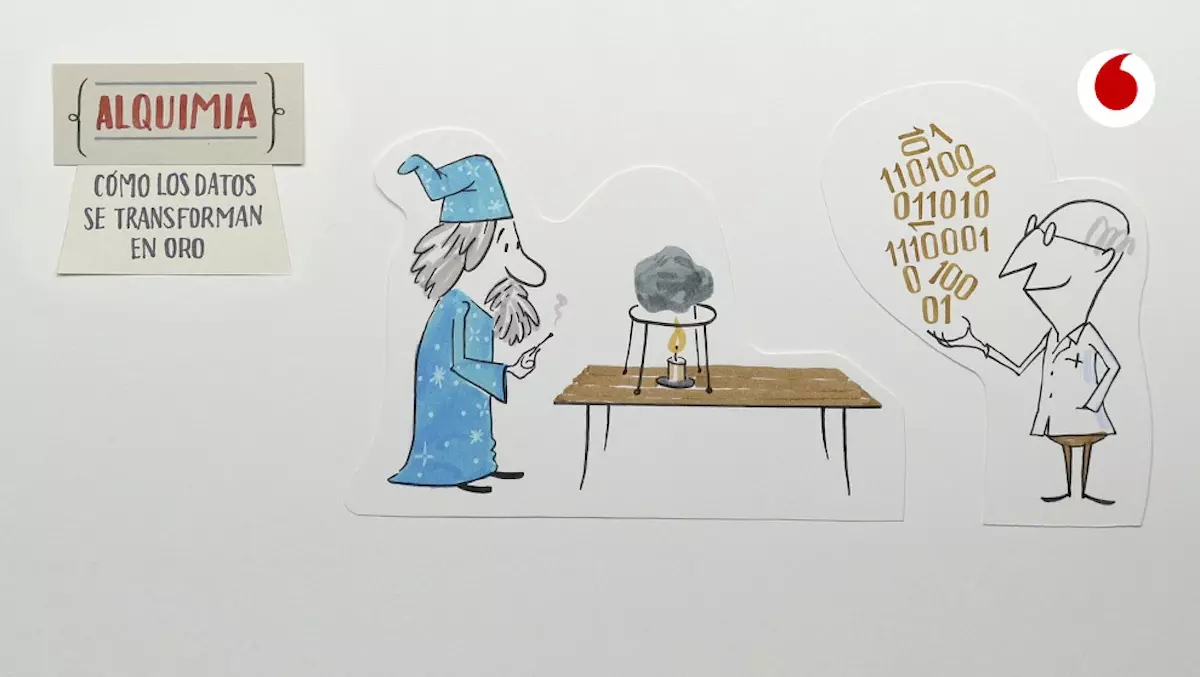 ALQUIMIA
CÓMO LOS DATOS
SE TRANSFORMAN
EN ORO
10 1
1101000
011010
1
1110001
0 100
01